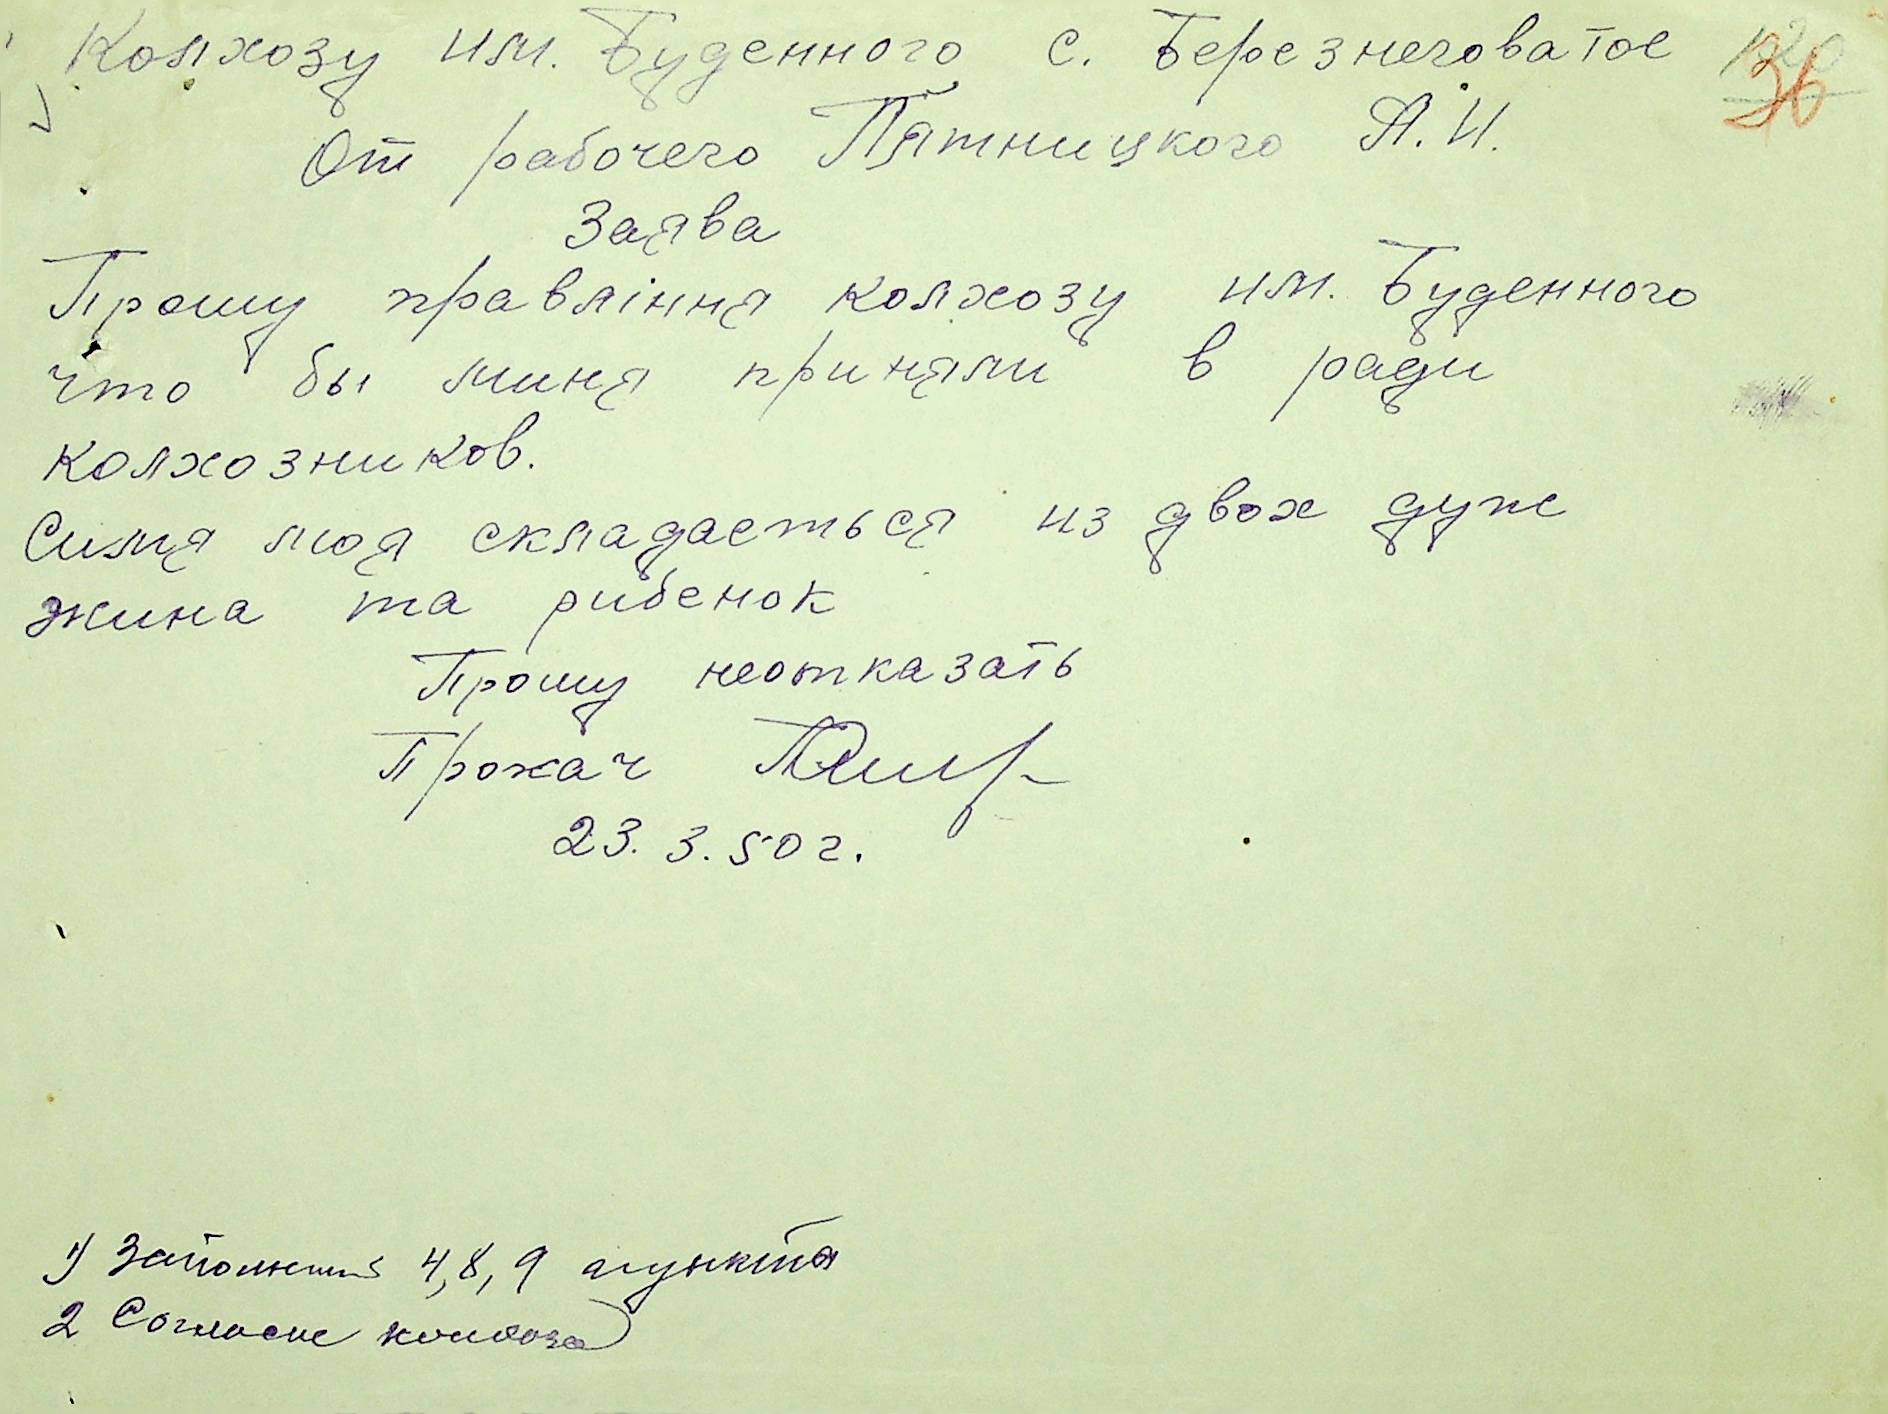 Колхозу им. Буденного с. Березнеговатое
От рабочего Пятницкого А.И.
Заява
Прошу правління колхозу им. Буденного
что бы миня приняли в ряди
колхозников.
Симя моя складається из двох душ
жина та рибенок
Прошу неотказать
Прохач
23.3.50г.
1) Заполнить 4,8,9 пункта
2 Согласие колхоза
36